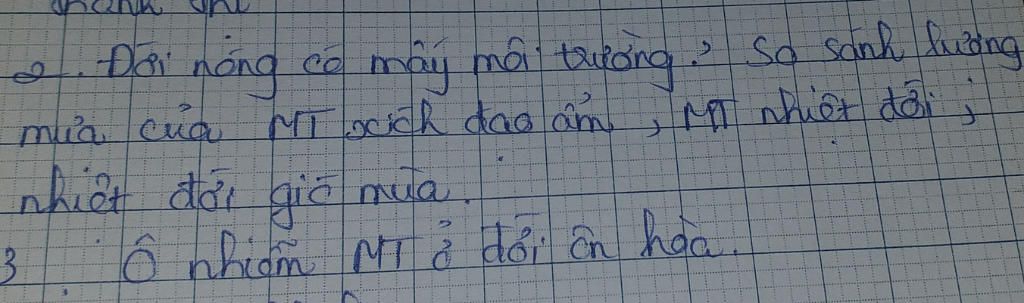 2. Đới nóng có mấy môi trường? So sánh lượng
mưa của MT xích đạo ẩm, MT nhiệt đới,
nhiệt đới gió mùa.
3 Ô nhiễm MT ở đới ôn hòa.